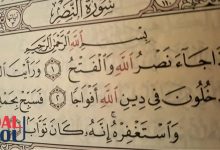 سُورَةُ النَّصْرِ
بِسْمِ اللَّهِ الرَّحْمَٰنِ الرَّحِيمِ
ذَا جَاءَ نَصْرُ اللَّهِ وَالْفَتْحُ ١ وَرَأَيْتَ
خُلُونَ فِي دِينِ اللَّهِ أَفْوَاجًا ٢ فَسَبِّحْ بِحَمْدِ
وَاسْتَغْفِرْهُ إِنَّهُ كَانَ تَوَّابًا